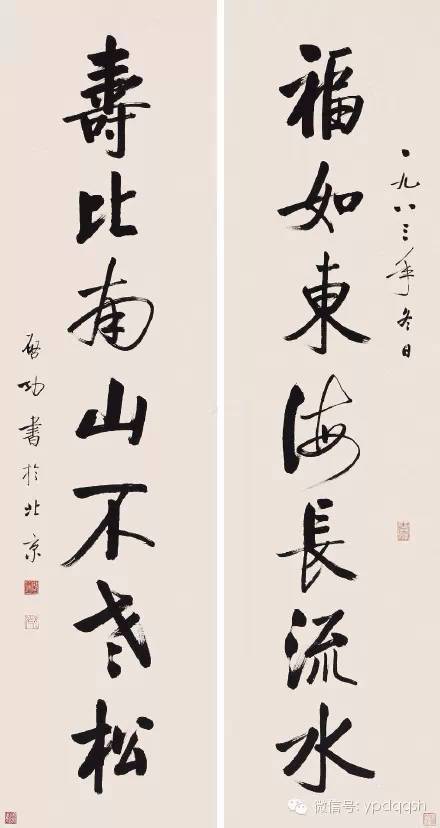 福如東海長流水
一九八三年冬日
壽比南山不老松
启功書於北京
微信号: ypdqqsh